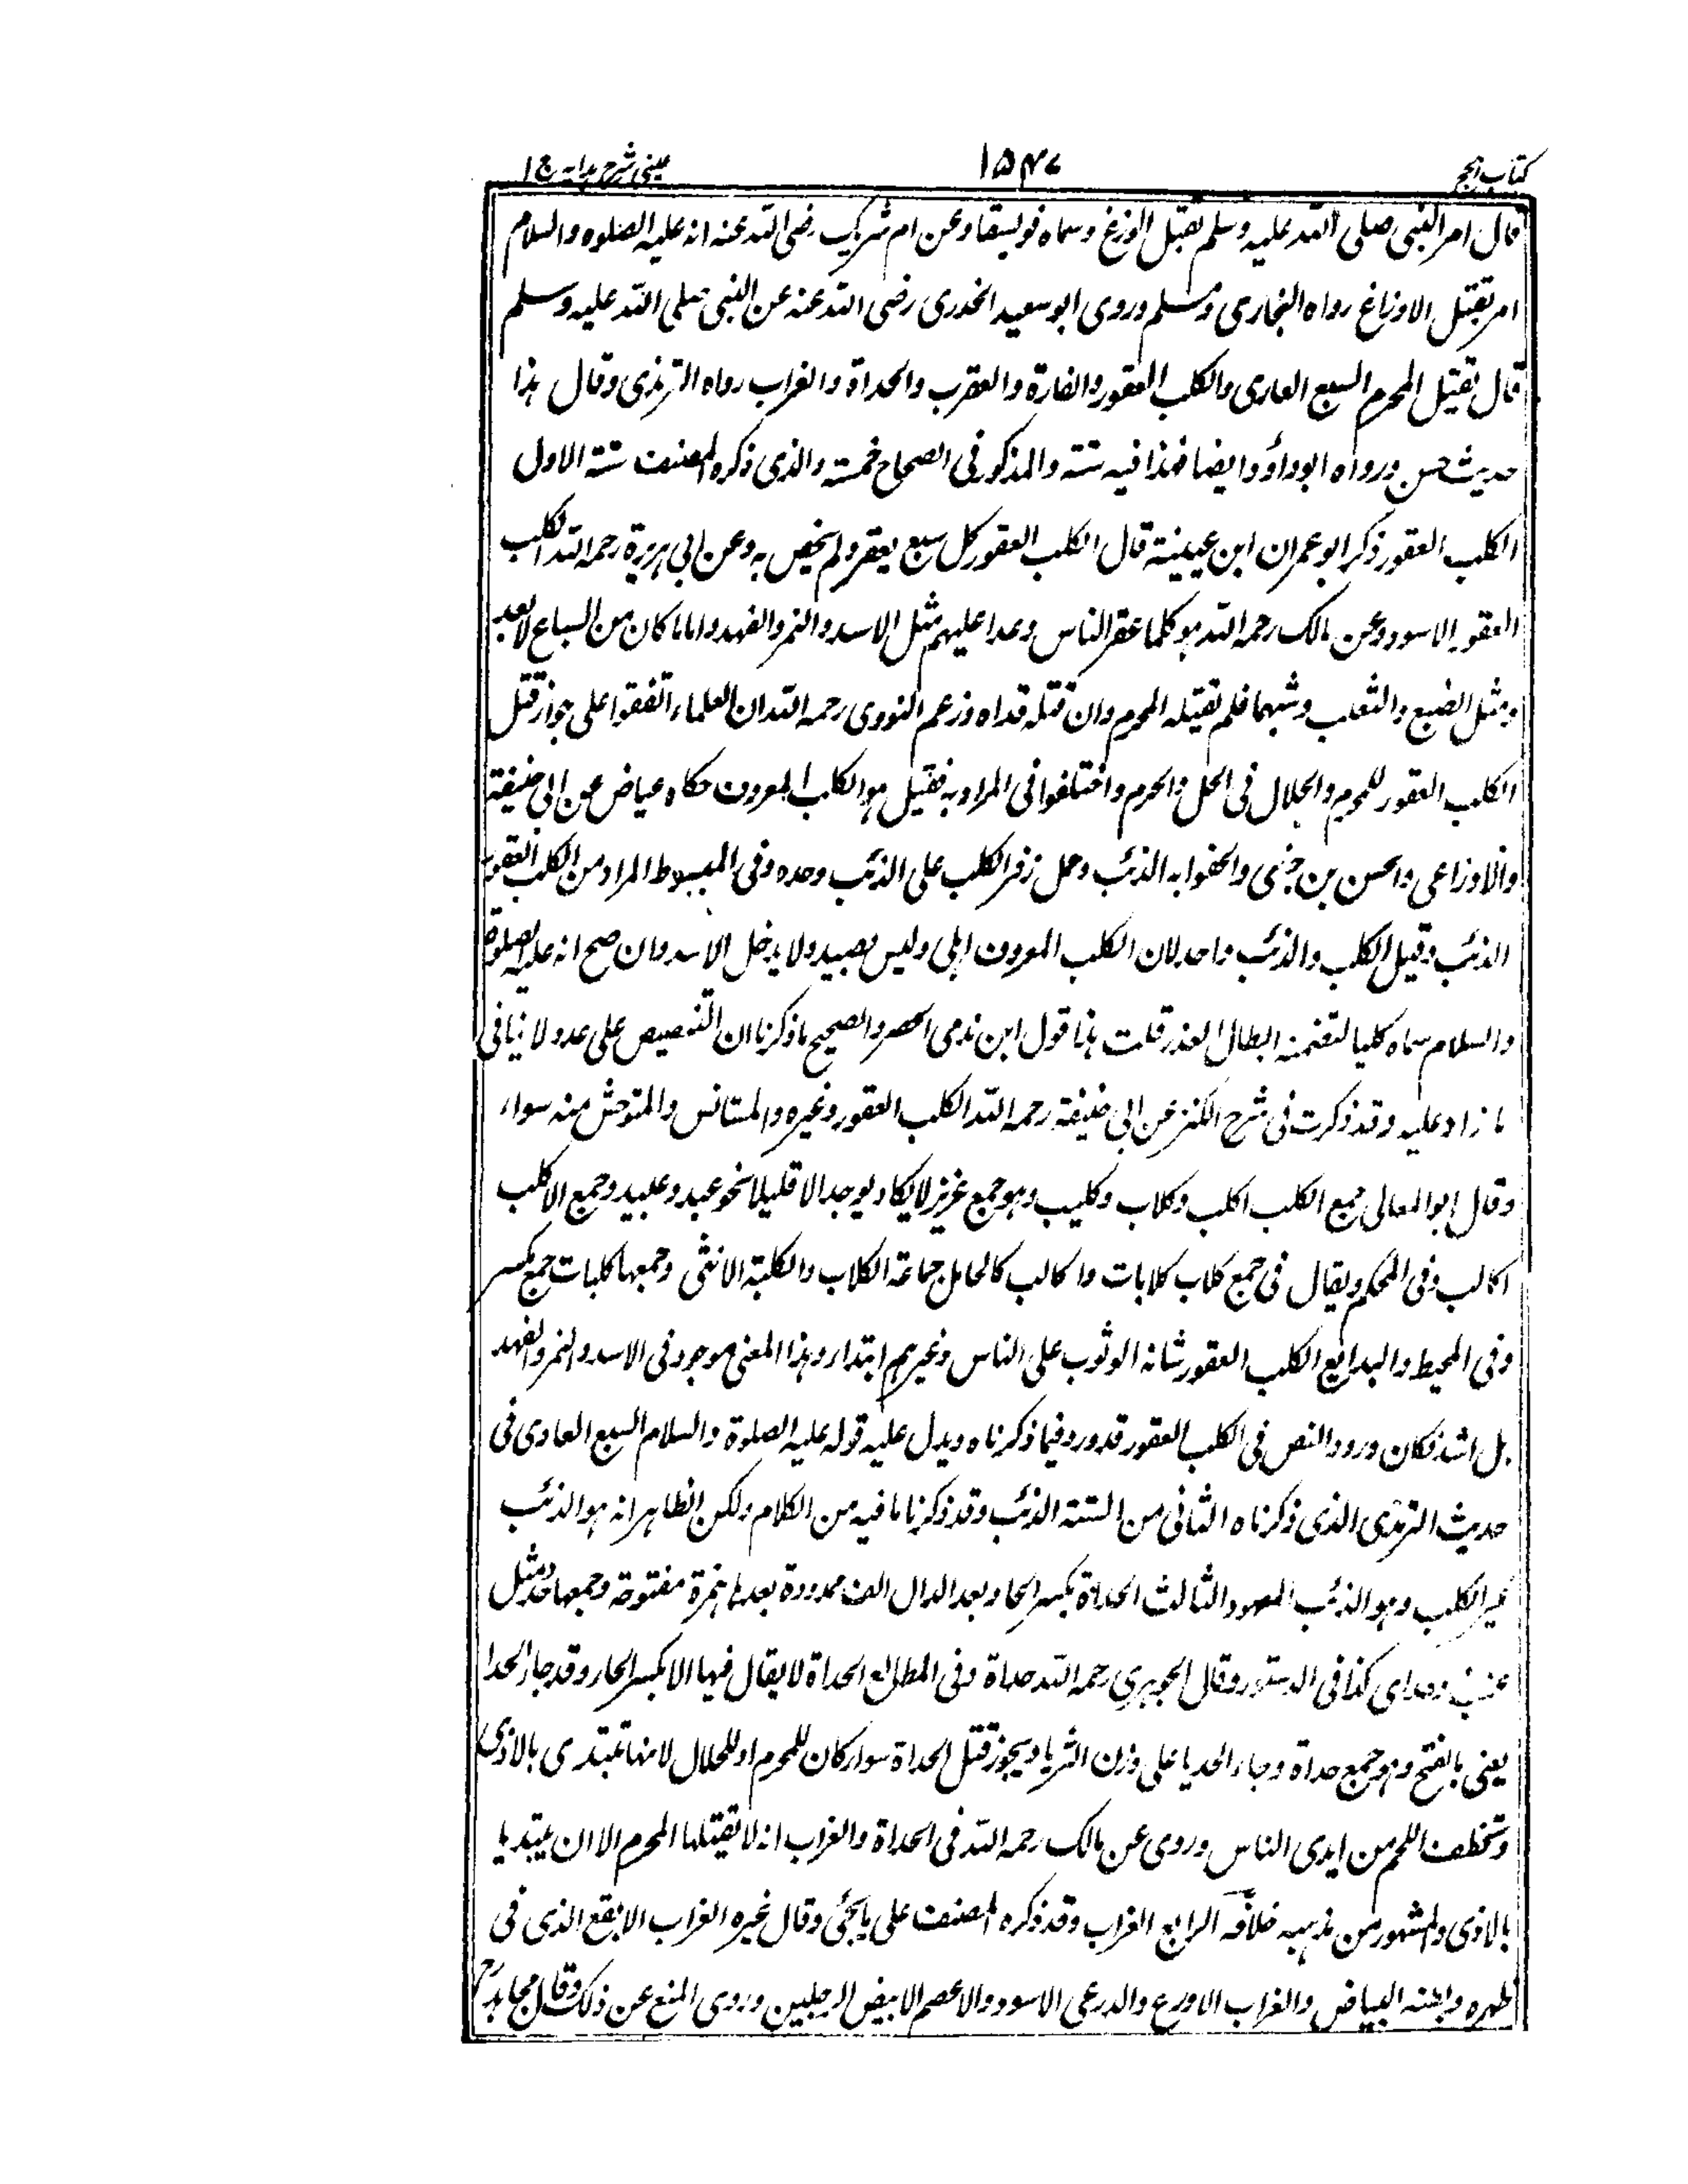 كتاب الحج ١٥٤٧ عينى شرح هدايه ج ١
قال امر النبى صلى الله عليه وسلم بقتل الوزغ وسماه فويسقا وعن ام شريك رضى الله عنه انه عليه الصلوه والسلام
امر بقتل الاوزاغ رواه البخارى ومسلم وروى ابو سعيد الخدرى رضى الله عنه عن النبى صلى الله عليه وسلم
قال يقتيل المحرم السبع العارى والكلب العقور والفارة والعقرب والحداة والغراب رواه الترمذى وقال هذا
حديث حسن ورواه ابو داؤد ايضا فهذا فيه ستة والمذكور فى الصحاح خمسة والذى ذكره المصنف ستة الاول
الكلب العقور ذكر ابو عمر ان ابن عيينة قال الكلب العقور كل سبع يعقر ولم يخص به وعن ابى هريرة رحمه الله الكلب
العقور الاسود وعن مالك رحمه الله هو كلما عقر الناس وعدا عليهم مثل الاسد والنمر والفهد واما ما كان من السباع لا يعد
ومثل الضبع والثعلب وشبهما فلم يقتله المحرم وان قتله فداه وزعم النووى رحمه الله ان العلماء اتفقوا على جواز قتل
الكلب العقور للمحرم والحلال فى الحل والحرم واختلفوا فى المراد به فقيل هو الكلب المعروف حكاه عياض عن ابى حنيفة
والاوزاعى والحسن بن حى والحقوا به الذئب وحمل زفر الكلب على الذئب وحده وفى المبسوط المراد من الكلب العقور
الذئب وقيل الكلب والذئب واحد لان الكلب المعروف اهلى وليس بصيد ولا يدخل الاسد وان صح انه عليه الصلوة
والسلام سماه كلبا لتضمنه ابطال العذر قلت هذا قول ابن ندمى الحصر والصحيح ما ذكرنا ان التنصيص على عدد لا ينافى
ما زاد عليه وقد ذكرت فى شرح الكنز عن ابى حنيفة رحمه الله الكلب العقور وغيره والمستانس والمتوحش منه سواء
وقال ابو المعالى جمع الكلب اكلب وكلاب وكليب وهو جمع عزيز لا يكاد يوجد الا قليلا نحو عبد وعبيد وجمع الاكلب
اكالب وفى المحكم ويقال فى جمع كلاب كلابات واكالب كالحامل جماعة الكلاب والكلبة الانثى وجمعها كلبات جمع مكسر
وفى المحيط والبدايع الكلب العقور شانه الوثوب على الناس وغيرهم ابتداء وهذا المعنى موجود فى الاسد والنمر والفهد
بل اشد فكان ورود النص فى الكلب العقور قد ورد فيما ذكرناه ويدل عليه قوله عليه الصلوة والسلام السبع العادى فى
حديث الترمذى الذى ذكرناه الثانى من الستة الذئب وقد ذكرنا ما فيه من الكلام ولكن الظاهر انه هو الذئب
غير الكلب وهو الذئب المعهود الثالث الحداة بكسر الحاء وبعد الدال الف ممدودة بعدها همزة مفتوحة وجمعها حدء مثل
عنب وحداى كذا فى الدستور وقال الجوهرى رحمه الله حداة وفى المطالع الحداة لا يقال فيها الا بكسر الحاء وقد جاء الحدا
يعنى بالفتح وهو جمع حداة وجاء الحديا على وزن الثريا ويجوز قتل الحداة سواء كان للمحرم او للحلال لانها تبتدى بالاذى
وتخطف اللحم من ايدى الناس وروى عن مالك رحمه الله فى الحداة والغراب انه لا يقتلها المحرم الا ان يبتديا
بالاذى والمشهور من مذهبه خلافه الرابع الغراب وقد ذكره المصنف على ما يجئى وقال غيره الغراب الابقع الذى فى
ظهره وبطنه البياض والغراب الاورع والدرعى الاسود والاعصم الابيض الرجلين وروى المنع عن ذلك وقال مجاهد رح